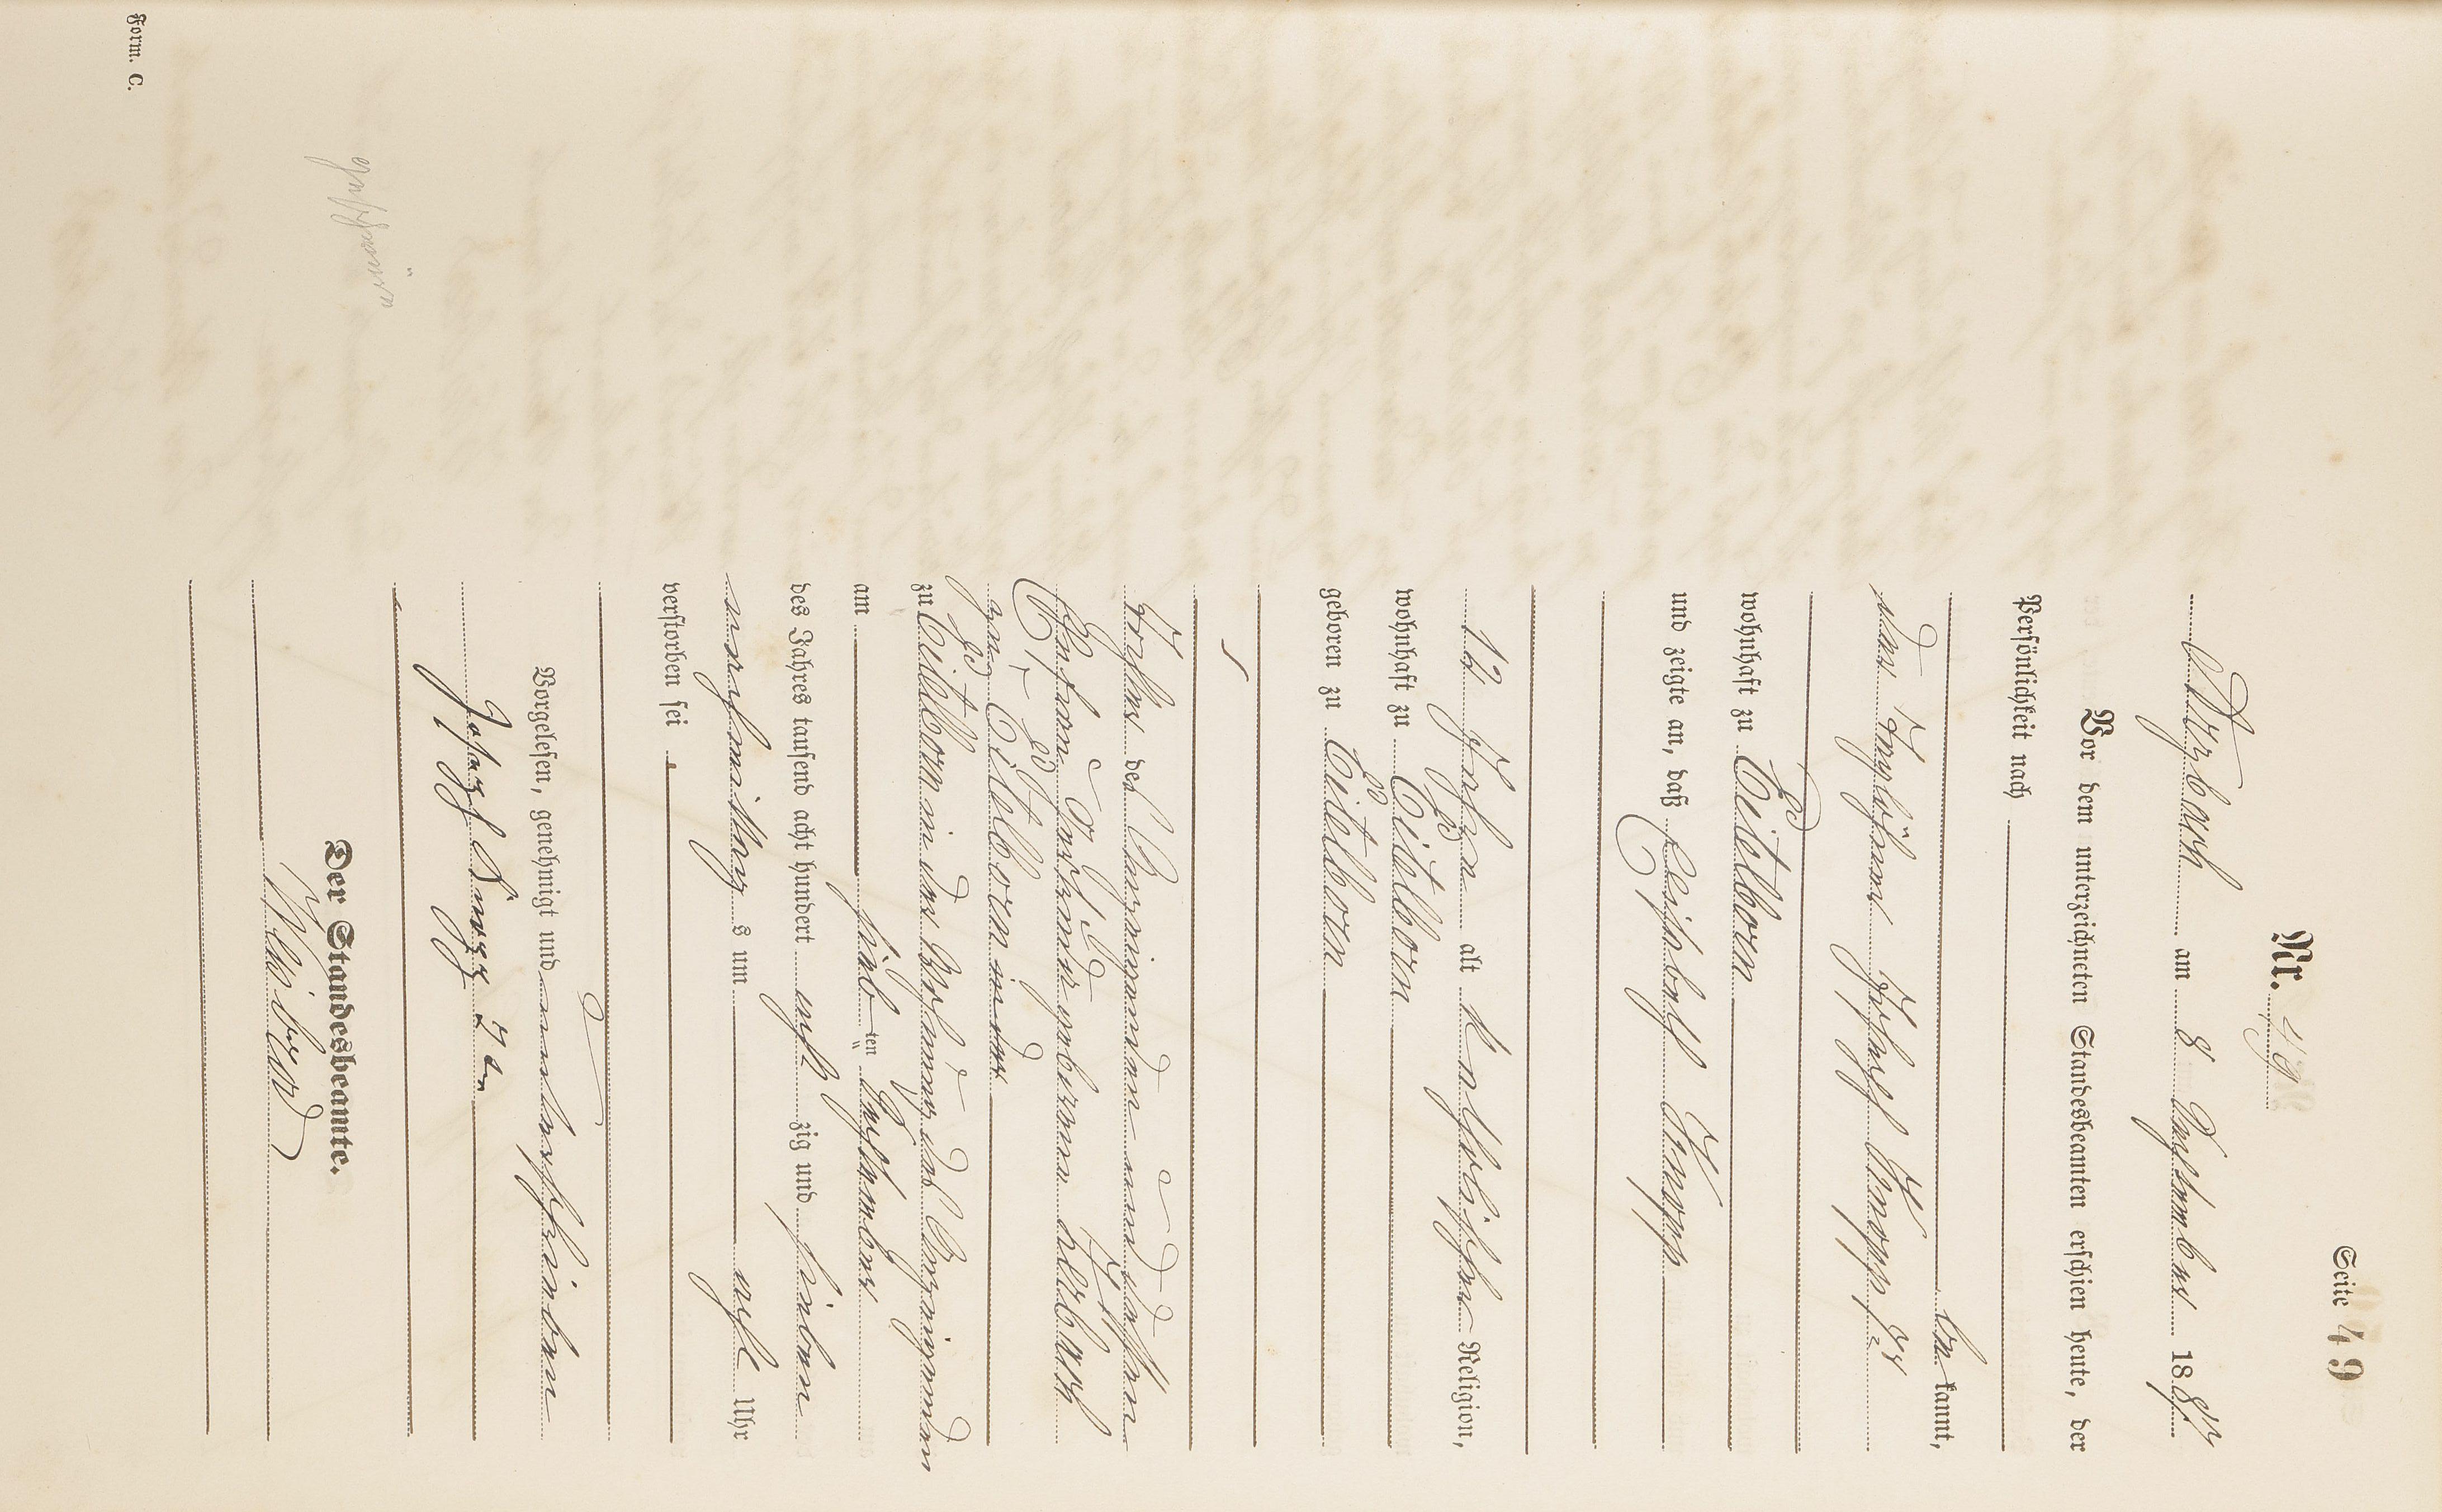 Seite 49
Nr. 49
Arzbach am 8 September 1887.
Vor dem unterzeichneten Standesbeamten erschien heute, der
Persönlichkeit nach
bekannt,
der Taglöhner Joseph Knopp
wohnhaft zu Eitelborn
und zeigte an, daß Elisabeth Knopp
12 Jahre alt katholischer Religion,
wohnhaft zu Eitelborn
geboren zu Eitelborn
Tochter des Anzeigenden und dessen
Ehefrau Margaretha geborene
zu Eitelborn in der
zu Eitelborn in der Wohnung des Anzeigenden
am siebten September
des Jahres tausend acht hundert acht zig und sieben
nachmittags um acht Uhr
verstorben sei
Vorgelesen, genehmigt und unterschrieben
Joseph Knopp
Der Standesbeamte.
geschwüre
Form. C.